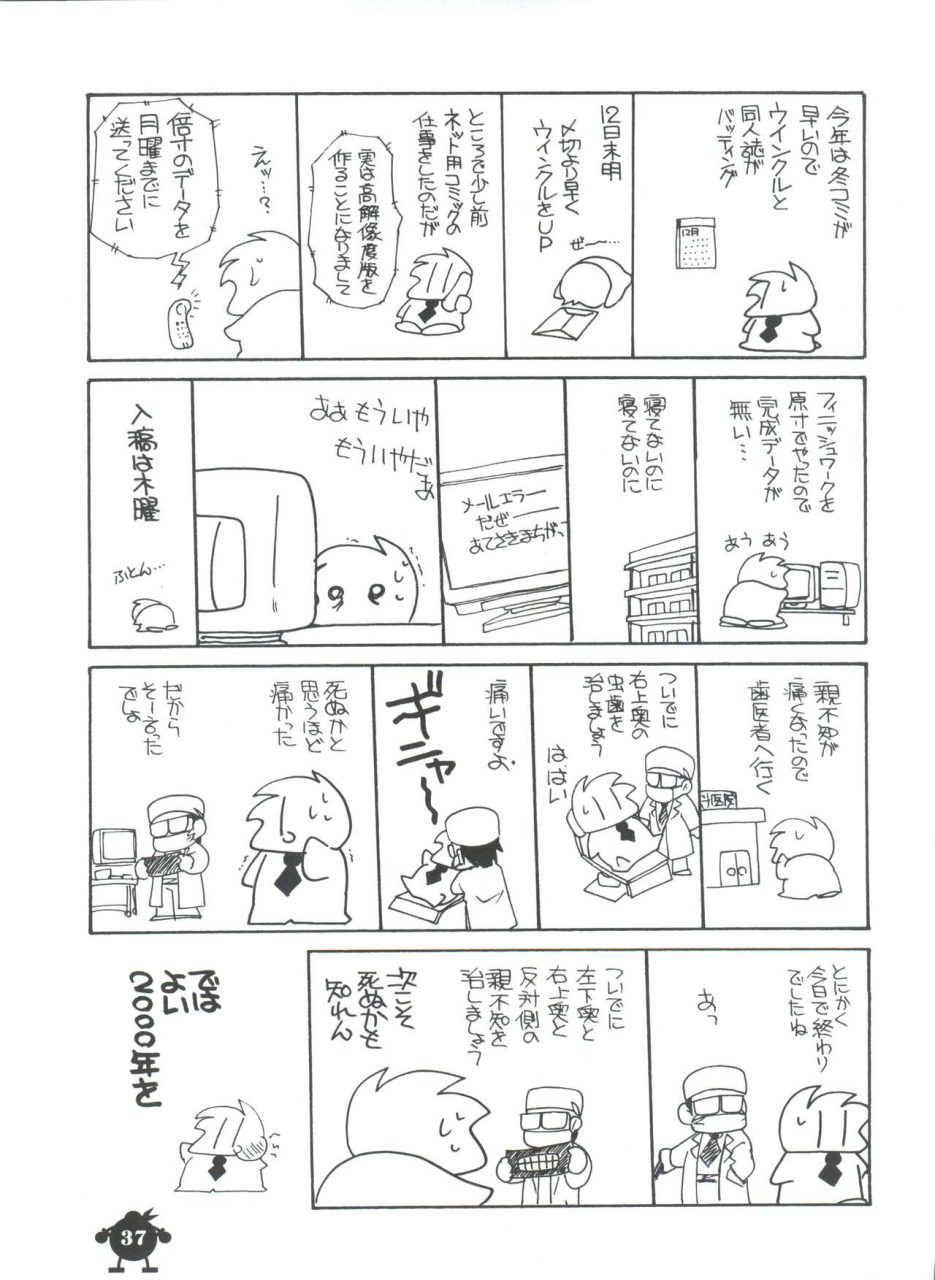 今年は冬コミが
早いので
ウインクルと
同人誌が
バッティング
12月
12日未明
〆切より早く
ウィンクルをUP
ぜー…
ところで少し前
ネット用コミックの
仕事をしたのだが
実は高解像度版を
作ることになりまして
えんッ…?
倍寸のデータを
月曜までに
送ってください
フィニッシュワークを
原寸でやったので
完成データが
無い…
あう あう
寝てないのに
寝てないのに
メールエラー
だぜ――
あてさきまちがっ
ああ もういや
もういやだぁ
入稿は木曜
ふとん…
親不知が
痛くなったので
歯医者へ行く
科医院
ついでに
右上奥の
虫歯を
治しましょう
は、はい
痛いですよ
ギニャー〜
死ぬかと
思うほど
痛かった
だから
そーゆった
でしょ
とにかく
今日で終わり
でしたね
あっ
ついでに
左下奥と
右上奥と
反対側の
親不知を
治しましょう
次こそ
死ぬかも
知れん
では
よい
2000年を
37